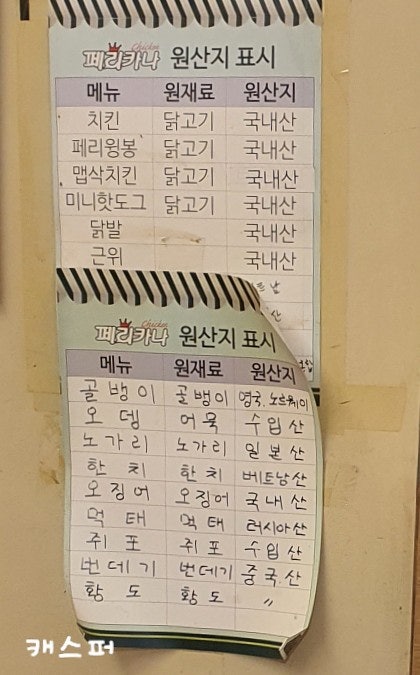 페리카나 Chicken 원산지 표시
메뉴 원재료 원산지
치킨 닭고기 국내산
페리윙봉 닭고기 국내산
맵삭치킨 닭고기 국내산
미니핫도그 닭고기 국내산
닭발 국내산
근위 국내산
페리카나 Chicken 원산지 표시
메뉴 원재료 원산지
골뱅이 골뱅이 영국, 노르웨이
오뎅 어묵 수입산
노가리 노가리 일본산
한치 한치 베트남산
오징어 오징어 국내산
먹태 먹태 러시아산
쥐포 쥐포 수입산
번데기 번데기 중국산
황도 황도 〃
캐스퍼